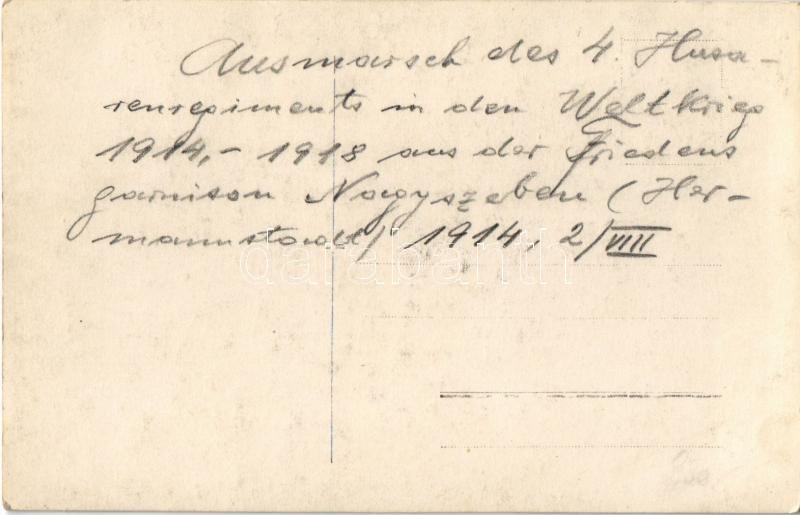 Ausmarsch des 4. Husa-
renregiments in den Weltkrieg
1914,- 1918 aus der Friedens
garnison Nagyszeben (Her-
mannstadt) 1914, 2/VIII
darabanth